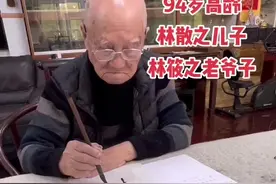 94岁高龄
林散之儿子
林筱之老爷子